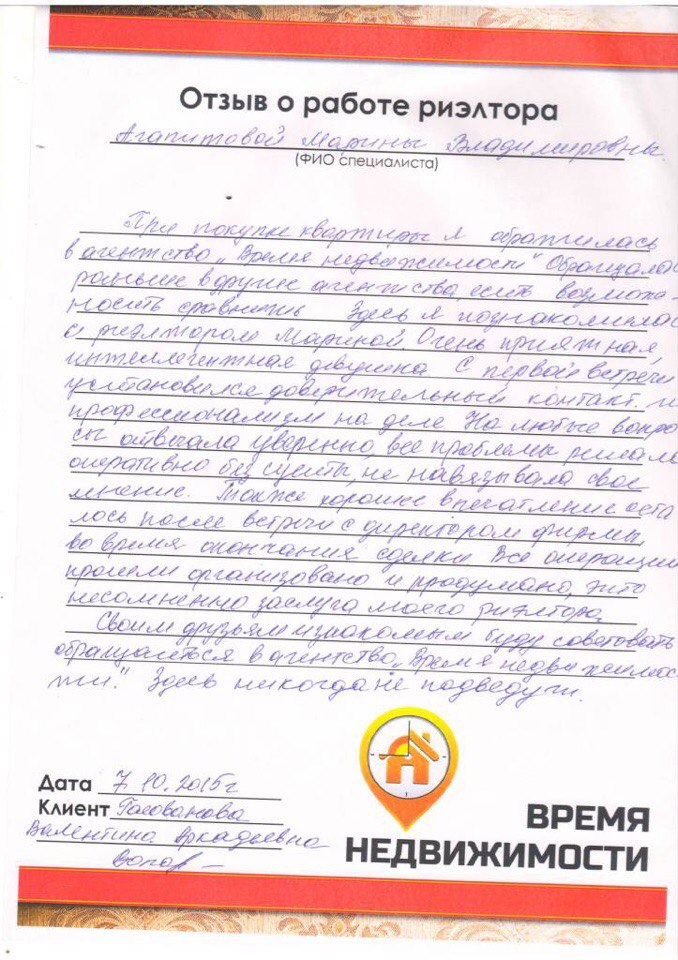 Отзыв о работе риэлтора
Агапитовой Марины Владимировны.
(ФИО специалиста)
При покупке квартиры я обратилась
в агентство „Время недвижимости" Обращалась
раньше в другие агентства есть возмож-
ность сравнить Здесь я познакомилась
с риэлтором Мариной. Очень приятная,
интеллегентная девушка С первой встречи
установился доверительный контакт. и
профессионализм на деле На любые вопро
сы отвечала уверенно, все проблемы решала
оперативно без суеты, не навязывала свое
мнение. Также хорошее впечатление оста
лось после встречи с директором фирмы
во время окончания сделки. Все операции
прошли организовано и продумано, это
несомненно заслуга моего риэлтора.
Своим друзьям и знакомым буду советовать
обращаться в агентство „Время недвижимос-
ти." Здесь никогда не подведут.
Дата 7.10.2015г
Клиент
Валентина Аркадьевна
ВРЕМЯ
НЕДВИЖИМОСТИ